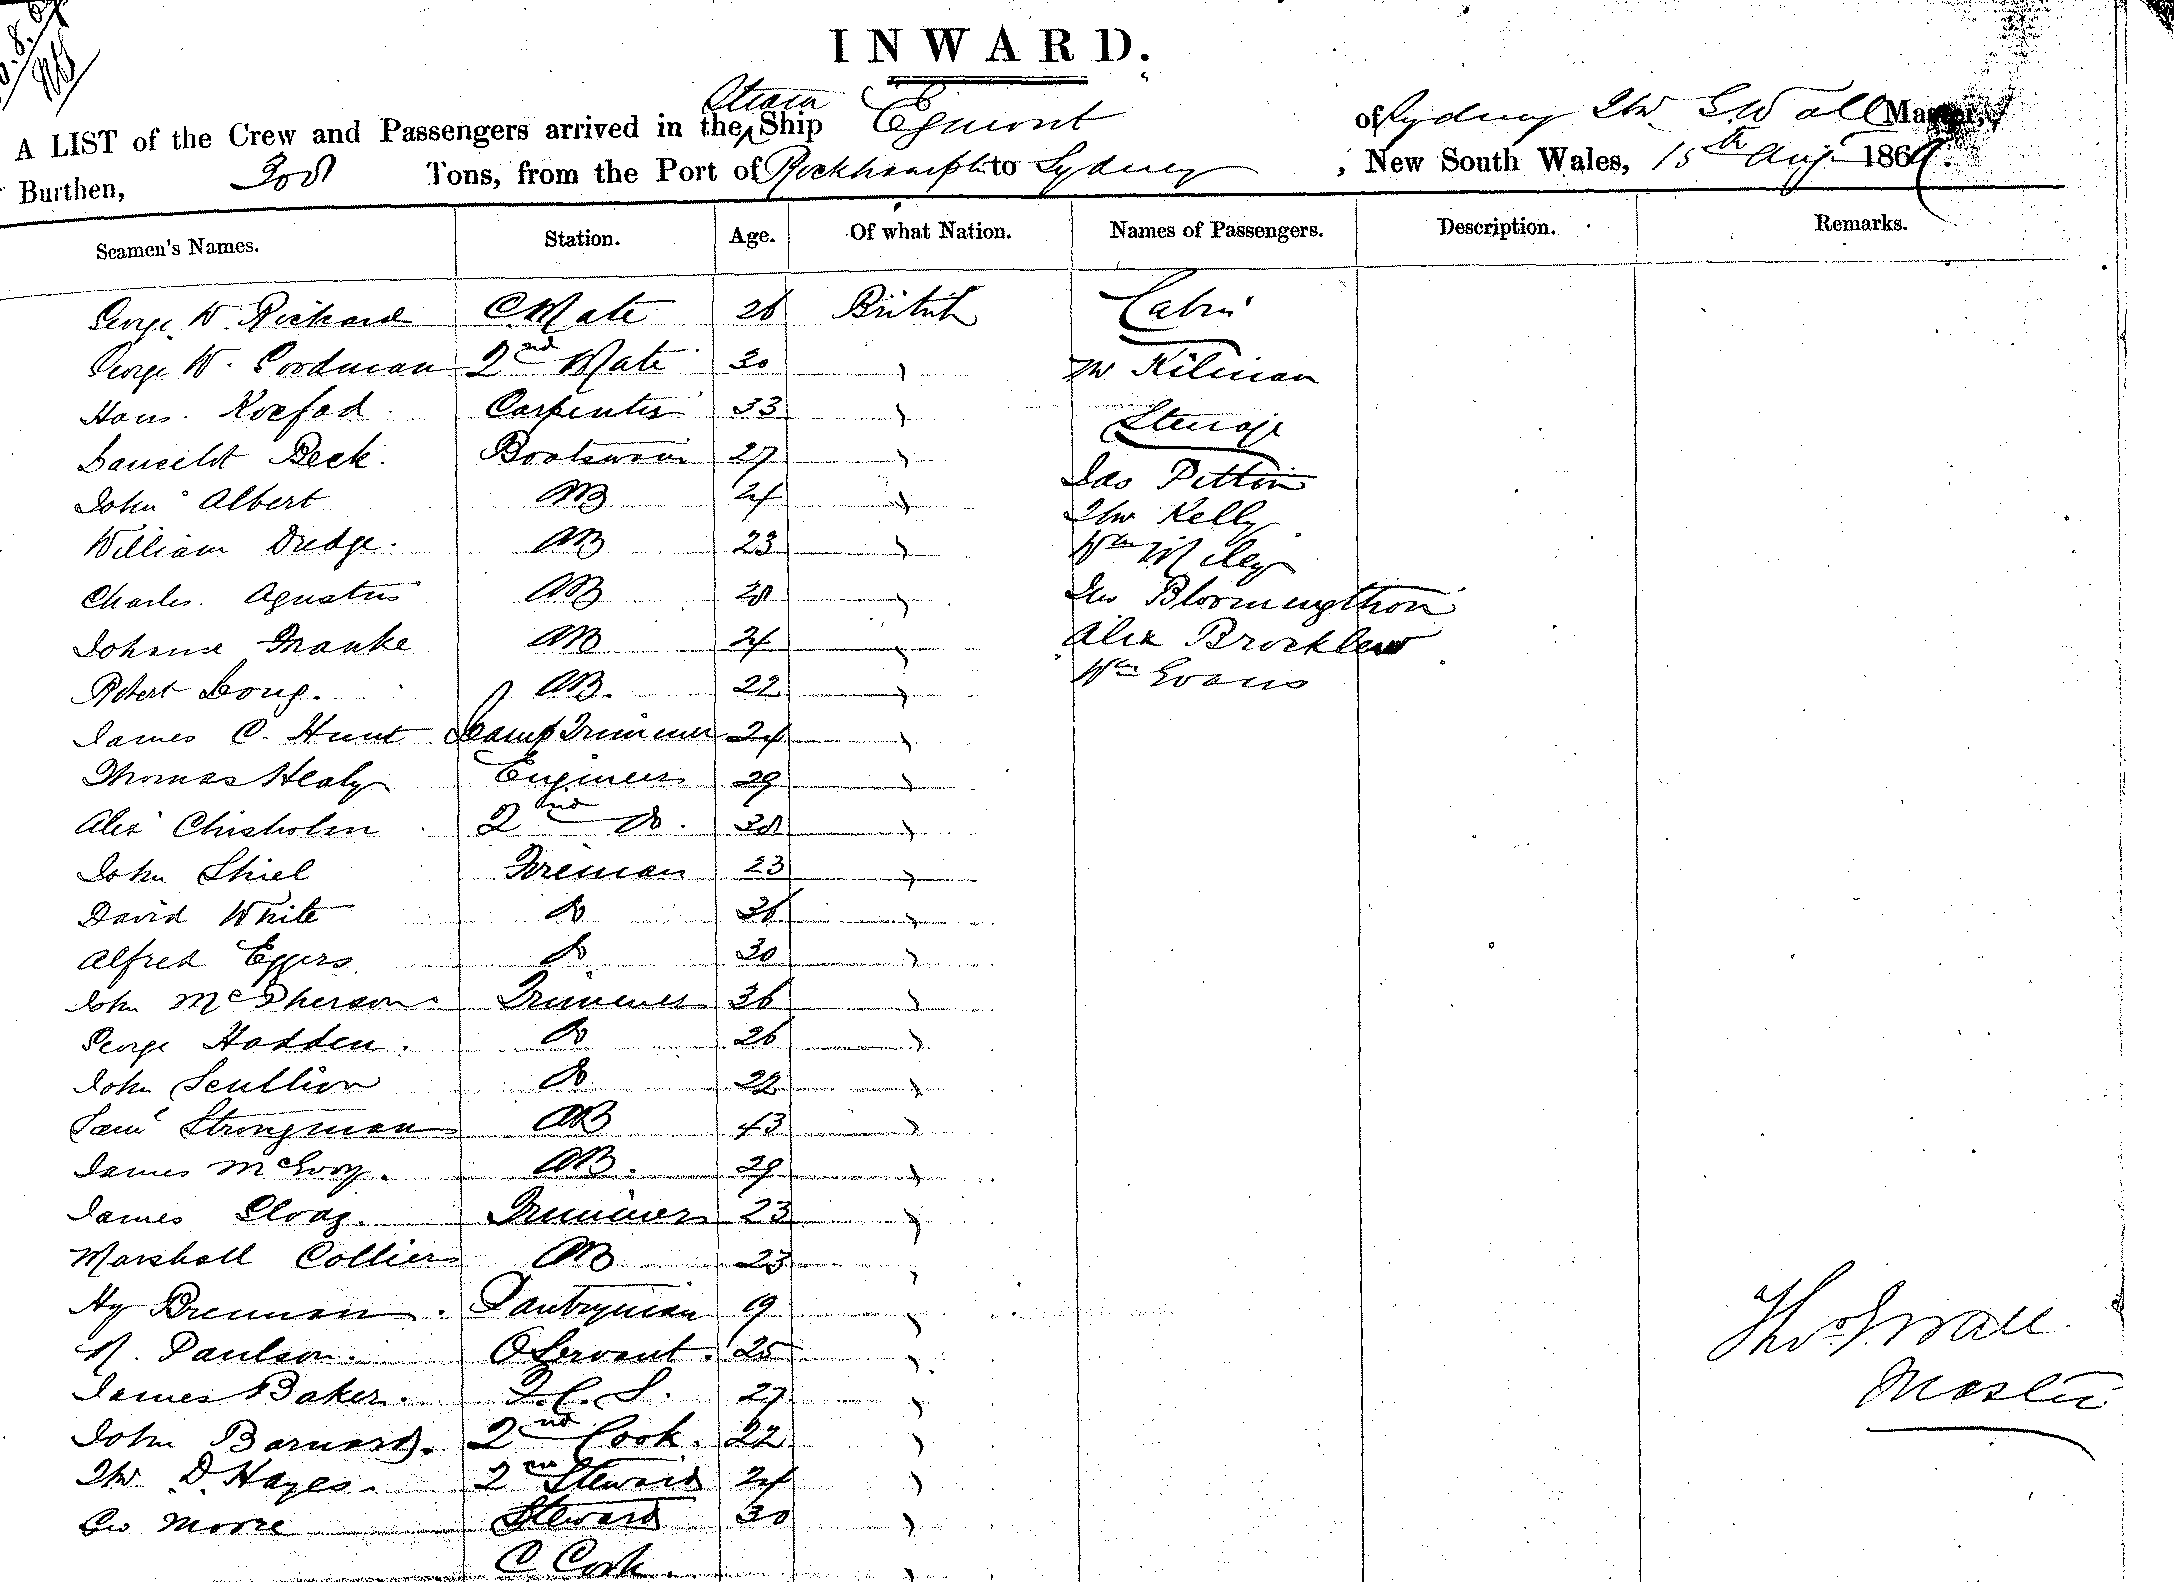 INWARD.
A LIST of the Crew and Passengers arrived in the Steam Ship Egmont of Sydney Thos S Wall Master,
Burthen, 308 Tons, from the Port of Rockhampton to Sydney, New South Wales, 15th Aug 186
Seamen's Names. Station. Age. Of what Nation. Names of Passengers. Description. Remarks.
George W. Richard C. Mate 26 British Cabin
George W. Cordman 2nd Mate 30 " Mr
Hans Koefod Carpenter 33 " Steerage
Lancelot Beck. Boatswain 27 " Jas Pettin
John Albert AB 24 " Thos Kelly
William Dredge. AB 23 " Wm Miley
Charles Agustus AB 28 " Jas Bloomingthon
Johann Franke AB 24 " Alex
Robert Long. AB. 22 " Wm Evans
James C. Hunt Lamp Trimmer 24 "
Thomas Healy Engineer 29 "
Alex Chisholm 2nd Do. 38 "
John Shiel Fireman 23 "
David White Do 36 "
Alfred Eggers Do 30 "
John McPherson Trimmer 36 "
George Hadden. Do 26 "
John Scullion Do 22 "
Saml Strongman AB 43 "
James McEvoy. AB. 29 "
James Trimmer 23 "
Marshall Collier AB 23 "
Hy Brennan Pantryman 19 "
N. Paulson. O Servant. 25 "
James Baker. F.C.S. 27 "
John Barnard. 2nd Cook. 22 "
Thos D. Hayes. 2nd Steward 24 "
Geo Moore Steward 30 "
C. Cook. "
Thos S Wall
Master